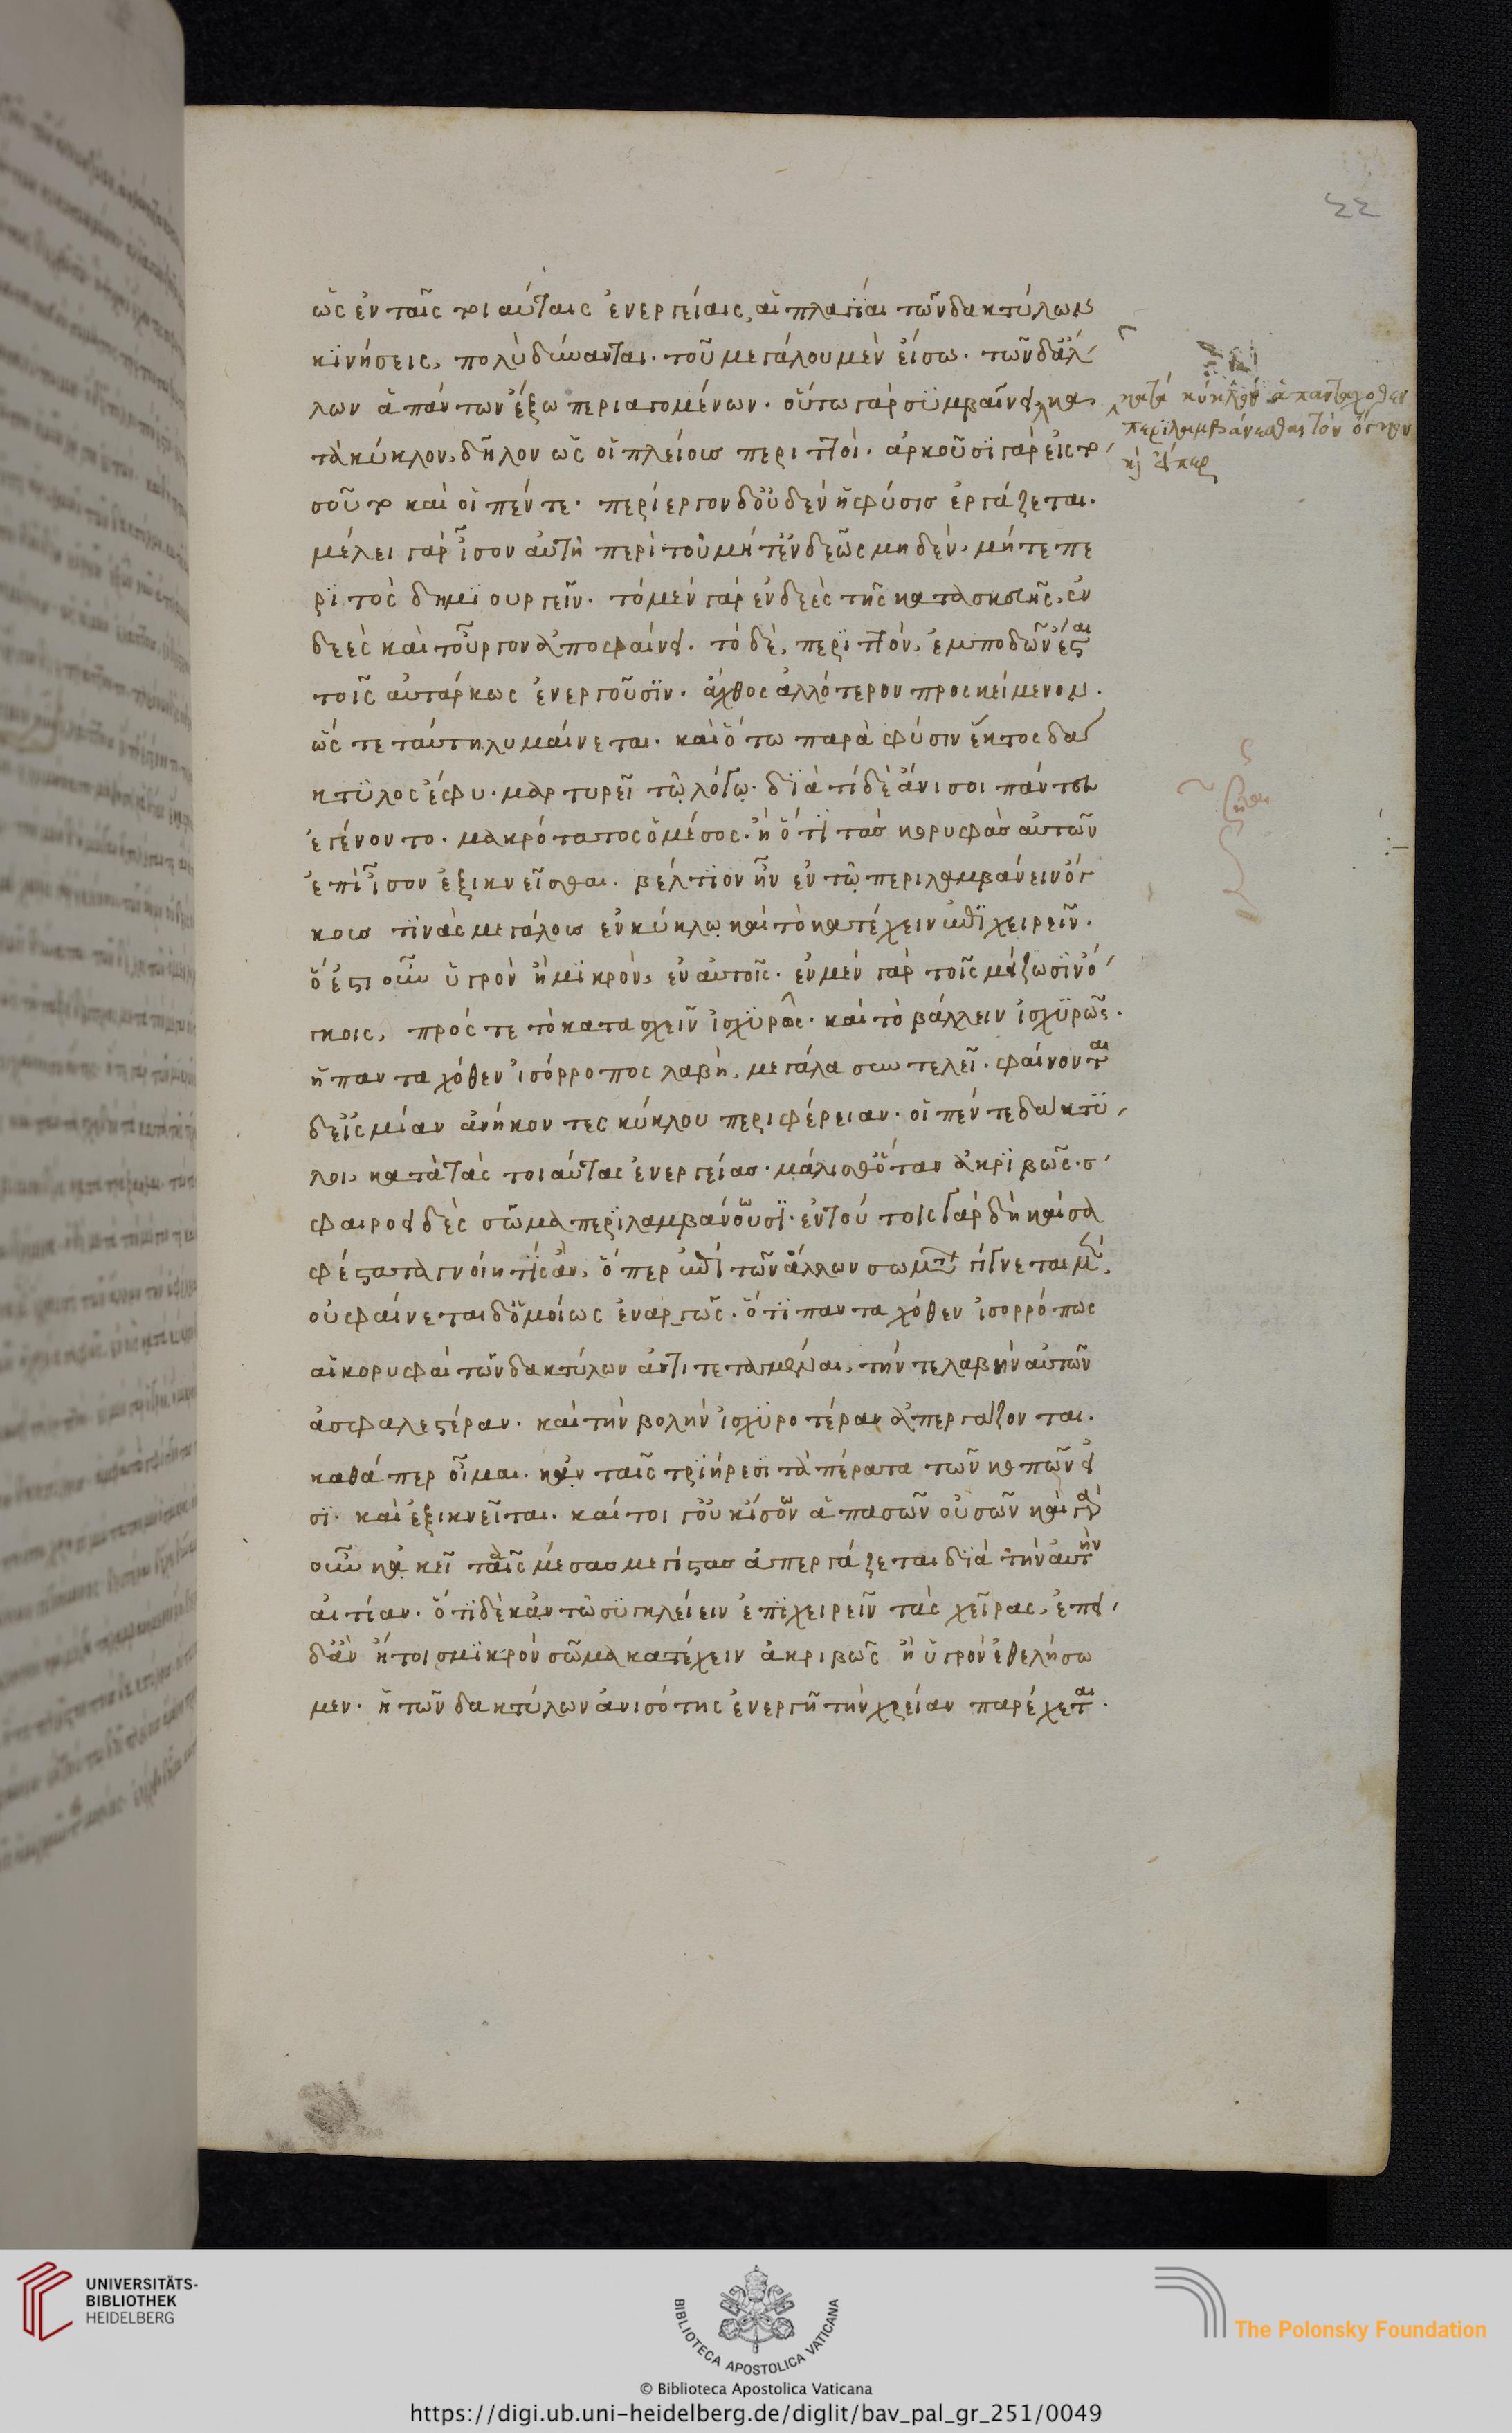 22
ὡς ἐν ταῖς τοιαύταις ἐνεργείαις, αἱ πλάγιαι τῶν δακτύλων
κϊνήσεις, πολὺ δύνανται. τοῦ μεγάλου μὲν εἴσω. τῶν δἄλ
λων ἁπάντων ἔξω περιαγομένων. οὕτω γὰρ συμβαίνει κα
τὰ κύκλον, δῆλον ὡς οἱ πλείους περιττοί. ἀρκοῦσϊ γὰρ εἰς το
κατὰ κύκλον ἁπανταχόθεν
περϊλαμβάνεσθαι τὸν ὄγκον
καὶ εἴπερ
σοῦτο καὶ οἱ πέντε. περίεργον δοὐδὲν ἡ φύσις ἐργάζεται.
μέλει γὰρ ἴσον αὐτῇ περὶ τοῦ μήτἐνδεῶς μηδὲν, μήτε πε
ρϊττὸς δημϊουργεῖν. τὸ μὲν γὰρ ἐνδεὲς τῆς κατασκευῆς, ἐν
δεὲς καὶ τοὖργον ἀποφαίνει. τὸ δὲ, περιττὸν, ἐμποδὼν ἔσται
τοῖς αὐτάρκως ἐνεργοῦσϊν. ἄχθος ἀλλότερον προσκείμενον.
ὥς τε ταύτῃ λυμαίνεται. καὶ ὅτω παρὰ φύσιν ἕκτος δα
κτϋλος ἔφυ. μαρτυρεῖ τῷ λόγῳ. δϊὰ τί δὲ ἄνισοι πάντες
ἐγένοντο. μακρότατος ὁ μέσος. ἢ ὅτι τὰς κορυφὰς αὐτῶν
ἐπὶ ἴσον ἐξικνεῖσθαι. βέλτϊον ἦν ἐν τῷ περιλαμβάνειν ὄγ
κους τϊνὰς μεγάλους ἐν κύκλῳ καὶ τὸ κατέχειν ἐπϊχειρεῖν.
ὅ ἐστι οὖν ὑγρὸν ἢ μϊκρὸν, ἐν αὐτοῖς. ἐν μὲν γὰρ τοῖς μείζωσϊν ὄ
γκοις, πρός τε τὸ κατασχεῖν ἰσχϋρῶς. καὶ τὸ βάλλειν ἰσχϋρῶς.
ἡ πανταχόθεν ἰσόρροπος λαβὴ, μεγάλα συντελεῖ. φαίνονται
δεἰς μίαν ἀνήκοντες κύκλου περιφέρειαν. οἱ πέντε δάκτϋ
λοι, κατὰ τὰς τοιαύτας ἐνεργείας. μάλισθὅταν ἀκρϊβῶς. σ
φαιροειδὲς σῶμα περϊλαμβάνουσϊ. ἐν τούτοις γὰρ δὴ καὶ σα
φέστατα γνοίη τϊς ἂν, ὅπερ ἐπὶ τῶν ἄλλων σωμάτων γίγνεται μὲν,
οὐ φαίνεται δὁμοίως ἐναργῶς. ὅτϊ πανταχόθεν ἰσορρόπως
αἱ κορυφαὶ τῶν δακτύλων ἀντιτεταγμέναι, τήν τε λαβὴν αὐτῶν
ἀσφαλεστέραν. καὶ τὴν βολὴν ἰσχϋροτέραν ἀπεργάζονται.
καθάπερ οἶμαι. κἀν ταῖς τρϊήρεσϊ τὰ πέρατα τῶν κωπῶν εἰ
σϊ. καὶ ἐξικνεῖται. καί τοι γοὐκ ἴσων ἁπασῶν οὐσῶν καὶ γὰρ
οὖν κἀκεῖ τὰς μέσας μεγίστας ἀπεργάζεται δϊὰ τὴν αὐτὴν
αἰτίαν. ὅτϊ δὲ κἀν τῷ συγκλείειν ἐπϊχειρεῖν τὰς χεῖρας, ἐπει
δἂν ἤτοι σμϊκρὸν σῶμα κατέχειν ἀκριβῶς ἢ ὑγρὸν ἐθελήσω
μεν. ἡ τῶν δακτύλων ἀνισότης ἐνεργῆ τὴν χρείαν παρέχεται.
UNIVERSITÄTS-
BIBLIOTHEK
HEIDELBERG
BIBLIOTECA APOSTOLICA VATICANA
© Biblioteca Apostolica Vaticana
The Polonsky Foundation
https://digi.ub.uni-heidelberg.de/diglit/bav_pal_gr_251/0049